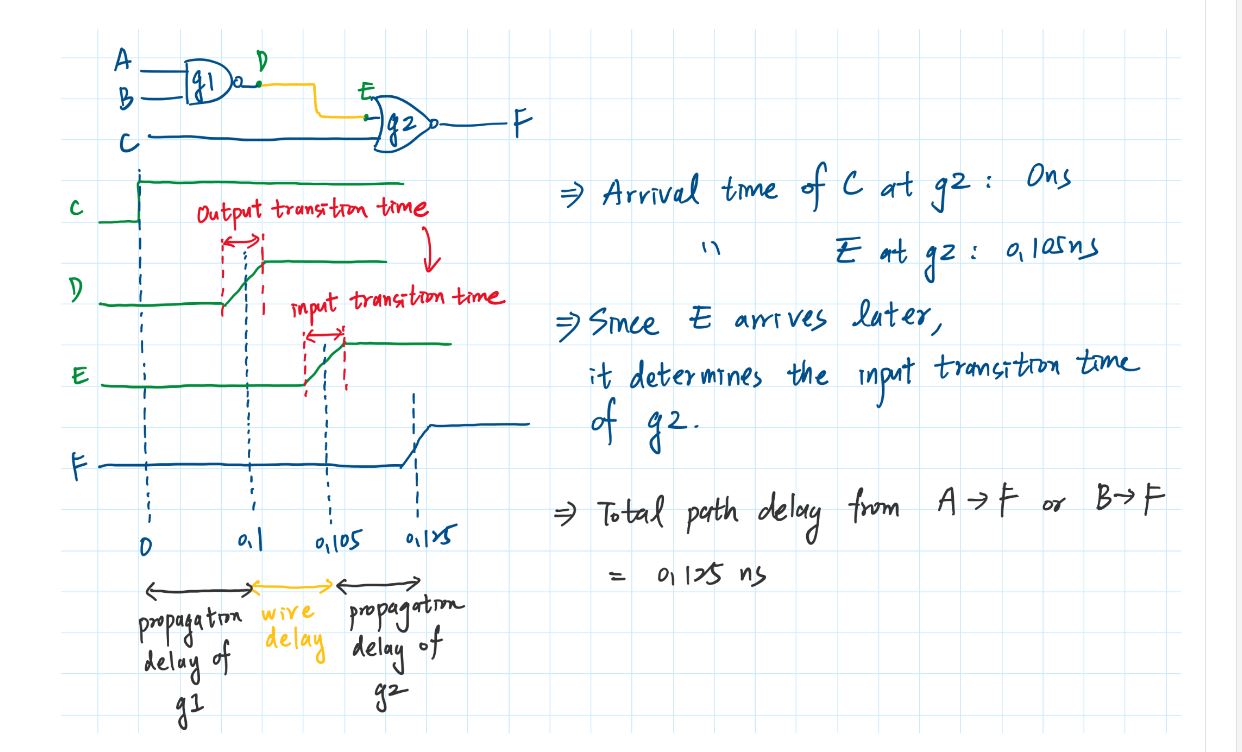 A
B
g1
D
E
C
g2
F
C
Output transition time
D
input transition time
E
F
0
0,1
0,105
0,125
propagation
delay of
g1
wire
delay
propagation
delay of
g2
⇒ Arrival time of C at g2 : 0ns
" E at g2 : 0,105ns
⇒ Since E arrives later,
it determines the input transition time
of g2.
⇒ Total path delay from A → F or B → F
= 0,125 ns